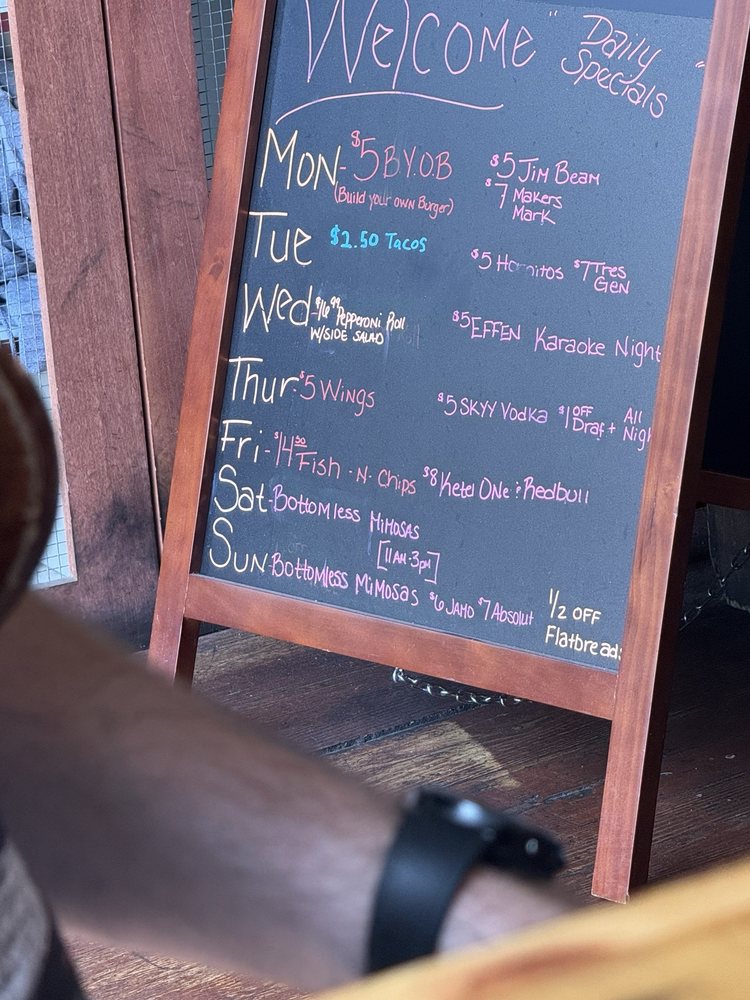 Welcome "Daily Specials"
Mon- $5 B.Y.O.B $5 Jim Beam
(Build your own Burger) $7 Makers Mark
Tue $2.50 Tacos $5 Hornitos $7 Tres Gen
Wed- $16.99 Pepperoni Roll $5 EFFEN Karaoke Night
W/SIDE SALAD
Thur- $5 Wings $5 SKYY Vodka $1 OFF Draft All Nigh
Fri- $14.50 Fish -N- Chips $8 Ketel One & Redbull
Sat- Bottomless Mimosas
[11AM-3pm]
Sun- Bottomless Mimosas $6 JAMO $7 Absolut 1/2 OFF Flatbreads